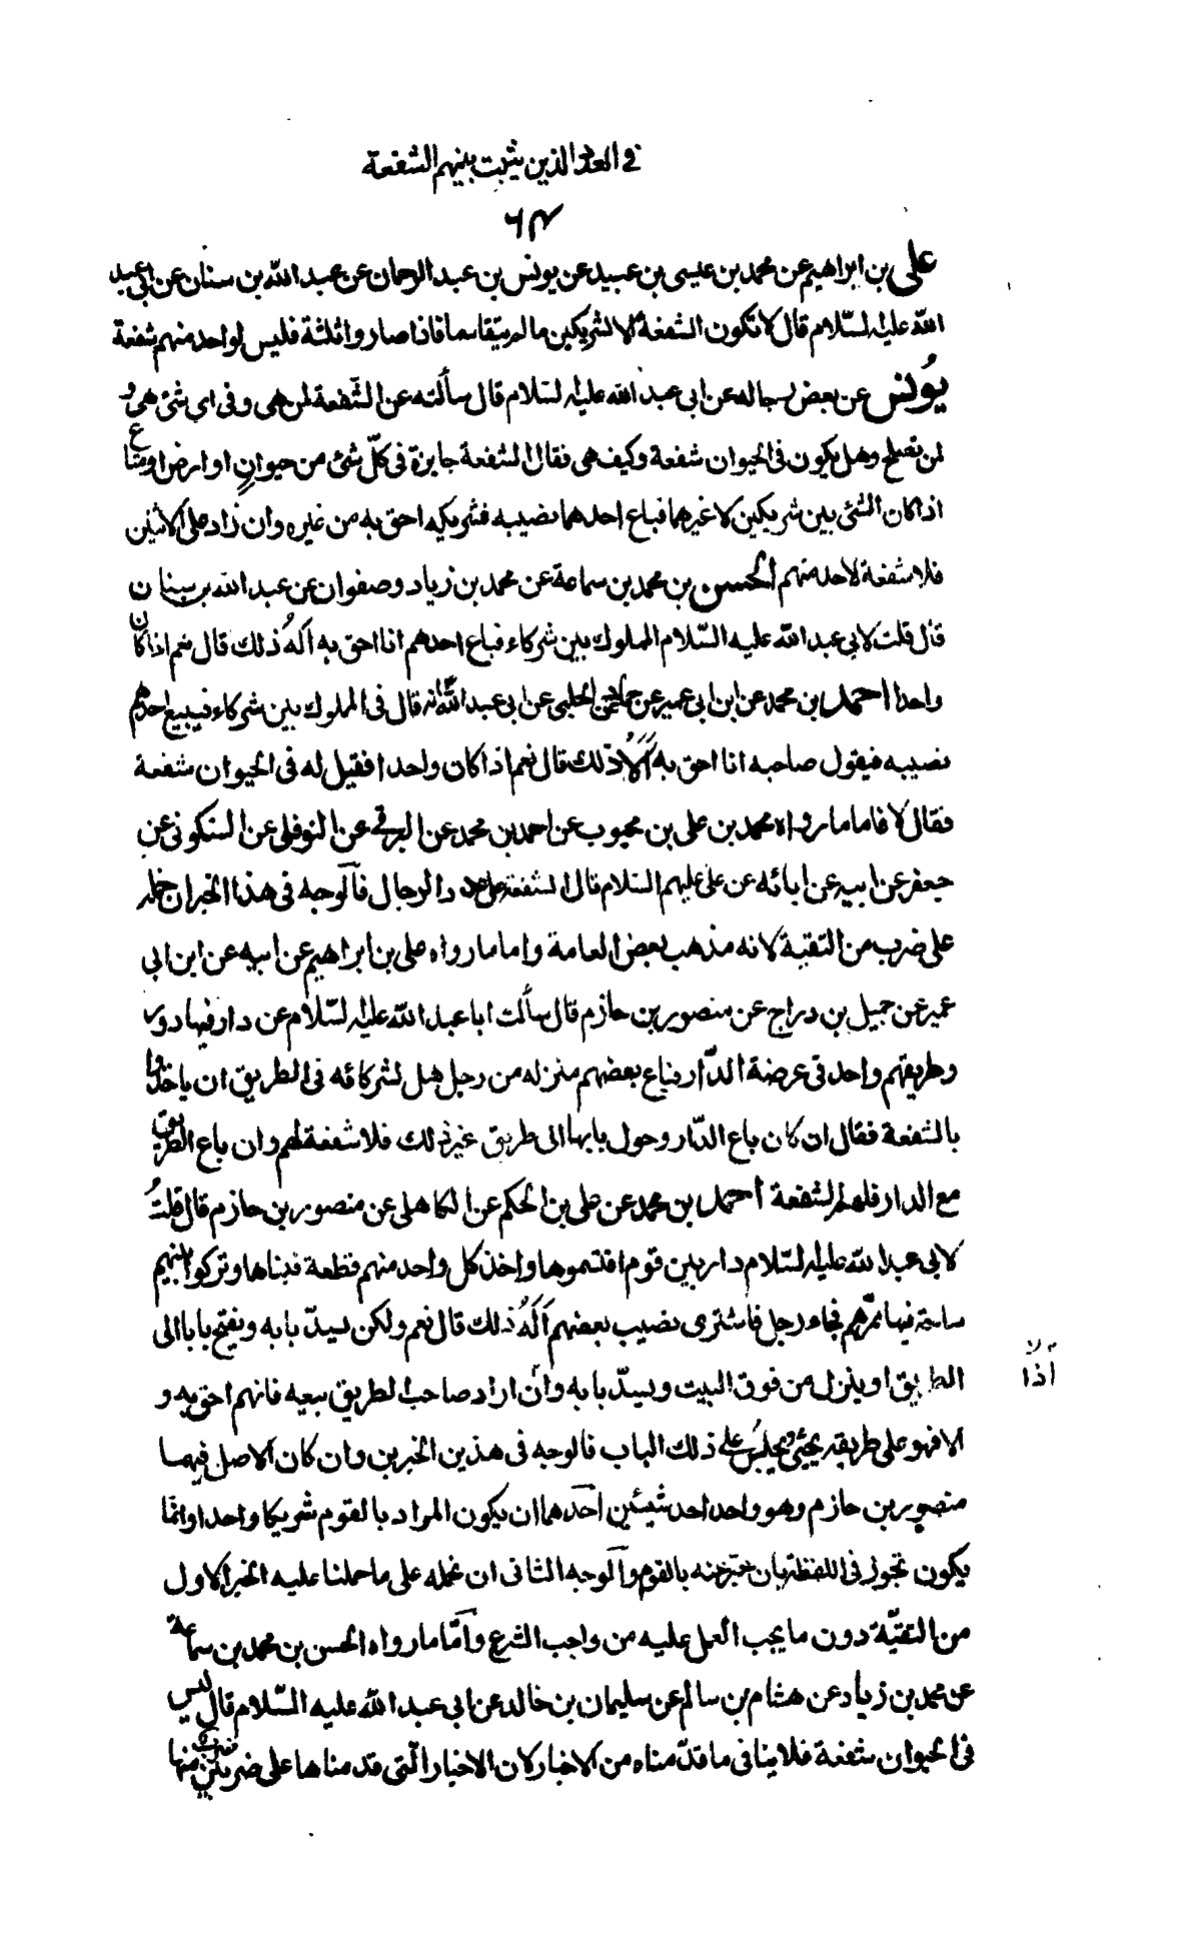 في العدد الذين يثبت بينهم الشفعة
٦٣
علي بن ابراهيم عن محمد بن عيسى بن عبيد عن يونس بن عبد الرحمان عن عبد الله بن سنان عن ابي عبد
الله عليه السّلام قال لا تكون الشفعة الا لشريكين مالم يتقاسما فاذا صاروا ثلثة فليس لواحد منهم شفعة
يُونس عن بعض رجاله عن ابى عبد الله عليه السلام قال سألته عن الشّفعة لمن هى وفى اى شئ هى و
لمن تصلح وهل يكون فى الحيوان شفعة وكيف هى فقال الشفعة جايزة فى كلّ شئ من حيوانٍ او ارض او متاع
اذا كان الشئ بين شريكين لا غيرهما فباع احدهما نصيبه فشريكه احق به من غيره وان زاد على الاثنين
فلا شفعة لاحد منهم الحسن بن محمد بن سماعة عن محمد بن زياد وصفوان عن عبد الله بن سنان
قال قلت لابي عبد الله عليه السّلام المملوك بين شركاء فباع احدهم انا احق به أَلَهُ ذلك قال نعم اذا كان
واحدا احمد بن محمد عن ابن ابى عمير عن حماد عن الحلبى عن ابى عبد الله انه قال فى المملوك بين شركاء فيبيع احدهم
نصيبه فيقول صاحبه انا احق به أَلَهُ ذلك قال نعم اذا كان واحدا فقيل له فى الحيوان شفعة
فقال لا فاما ما رواه محمد بن على بن محبوب عن احمد بن محمد عن البرقى عن النوفلى عن السكونى عن
جعفر عن ابيه عن ابائه عن على عليهم السّلام قال الشفعة على عدد الرجال فالوجه فى هذا الخبر ان نحمله
على ضرب من التقية لانه مذهب بعض العامة واما ما رواه على بن ابراهيم عن ابيه عن ابن ابى
عمير عن جميل بن دراج عن منصور بن حازم قال سألت ابا عبد الله عليه السّلام عن دار فيها دور
وطريقهم واحد فى عرصة الدّار فباع بعضهم منزله من رجل هل لشركائه فى الطريق ان ياخذوا
بالشفعة فقال ان كان باع الدّار وحول بابها الى طريق غير ذلك فلا شفعة لهم وان باع الطريق
مع الدار فلهم الشفعة احمد بن محمد عن على بن الحكم عن الكاهلى عن منصور بن حازم قال قلتُ
لابى عبد الله عليه السّلام دار بين قوم اقتسموها واخذ كل واحد منهم قطعة فبناها وتركوا بينهم
ساحة فيها ممرّهم فجاء رجل فاشترى نصيب بعضهم أَلَهُ ذلك قال نعم ولكن يسدّ بابه ويفتح بابا الى
الطريق او ينزل من فوق البيت ويسدّ بابه وان اراد صاحب الطريق بيعه فانهم احق به و
الا فهو على طريقه يجئ ويجلس على ذلك الباب فالوجه فى هذين الخبرين وان كان الاصل فيهما
منصور بن حازم وهو واحد احد شيئين احدهما ان يكون المراد بالقوم شريكا واحدا وانّما
يكون تجوز فى اللفظ بان عبّر عنه بالقوم والوجه الثانى ان نحمله على ما حملنا عليه الخبر الاول
من التقيّة دون ما يجب العمل عليه من واجب الشرع وامّا ما رواه الحسن بن محمد بن سماعة
عن محمد بن زياد عن هشام بن سالم عن سليمان بن خالد عن ابى عبد الله عليه السّلام قال ليس
فى الحيوان شفعة فلا ينافى ما قدّمناه من الاخبار لان الاخبار الّتى قدمناها على ضربين منها
اذا